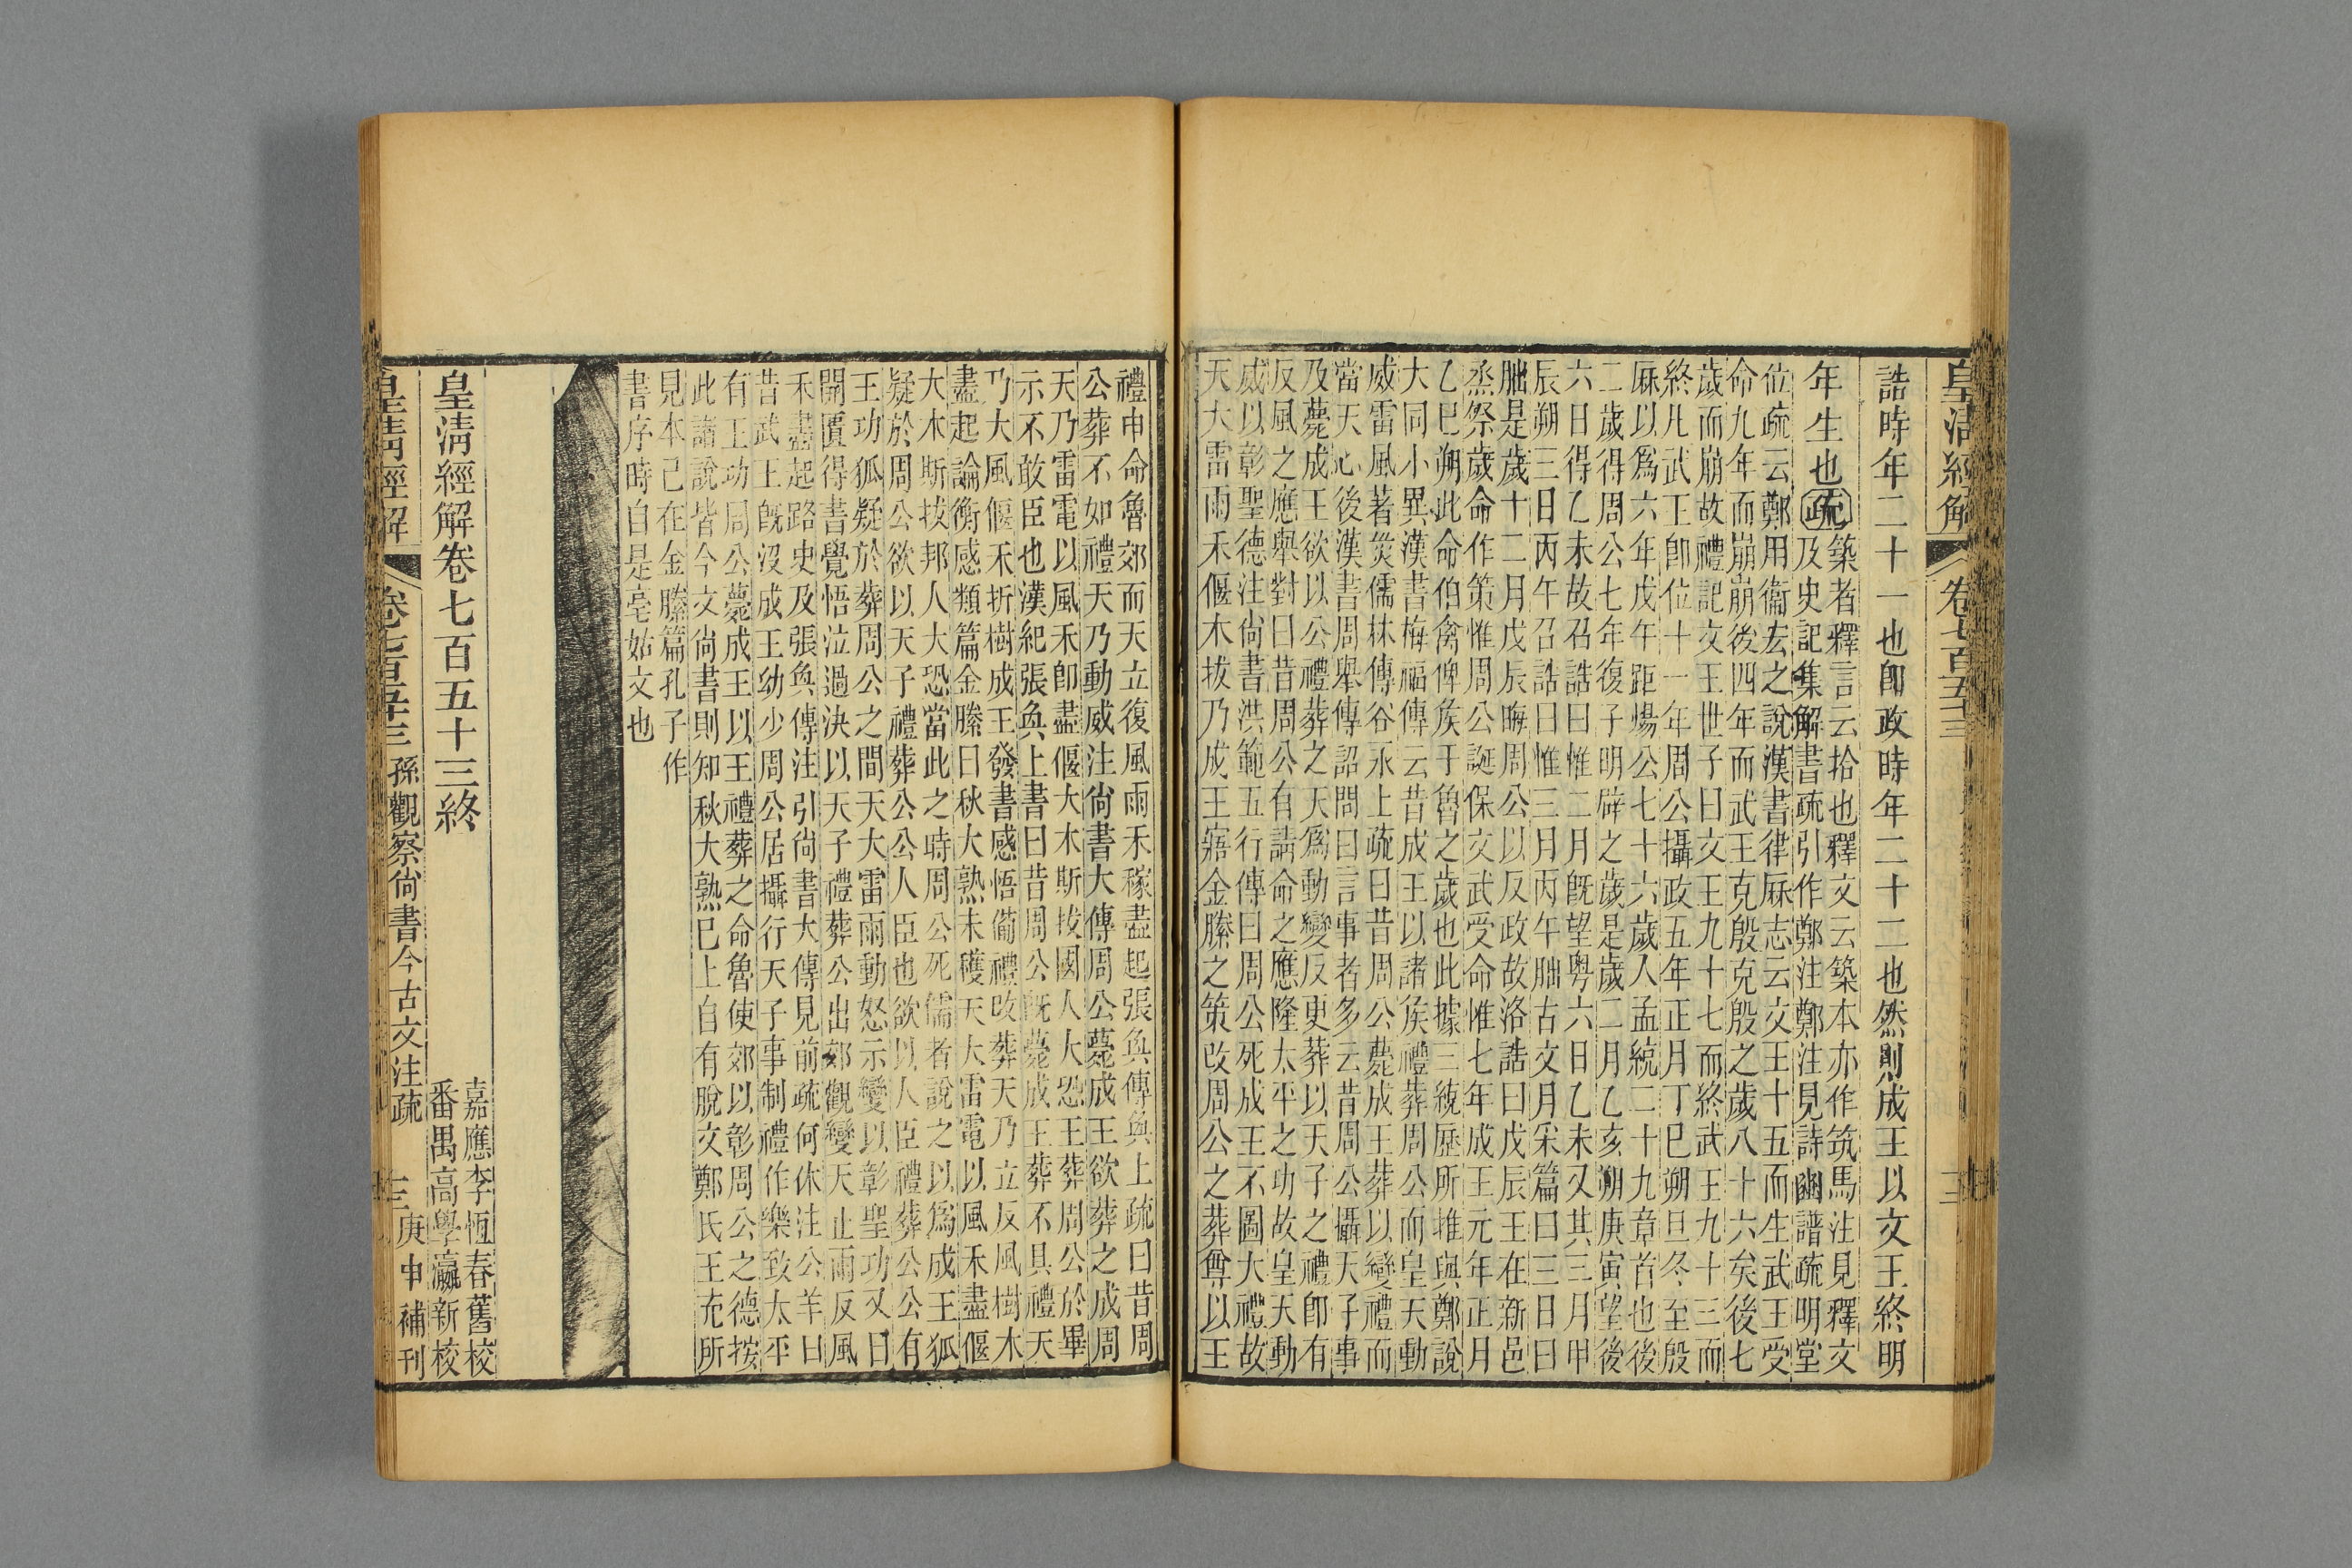 皇清經解
卷七百五十三
誥時年二十一也卽政時年二十二也然則成王以文王終明
年生也疏
築者釋言云拾也釋文云築本亦作筑馬注見釋文
及史記集解書疏引作鄭注鄭注見詩豳譜疏明堂
位疏云鄭用衞宏之說漢書律厤志云文王十五而生武王受
命九年而崩崩後四年而武王克殷克殷之歲八十六矣後七
歲而崩故禮記文王世子曰文王九十七而終武王九十三而
終凡武王卽位十一年周公攝政五年正月丁巳朔旦冬至殷
厤以爲六年戊午距煬公七十六歲入孟統二十九章首也後
二歲得周公七年復子明辟之歲是歲二月乙亥朔庚寅望後
六日得乙未故召誥曰惟二月旣望粤六日乙未又其三月甲
辰朔三日丙午召誥曰惟三月丙午朏古文月采篇曰三日曰
朏是歲十二月戊辰晦周公以反政故洛誥曰戊辰王在新邑
烝祭歲命作策惟周公誕保文武受命惟七年成王元年正月
乙巳朔此命伯禽俾矦于魯之歲也此據三統歷所推與鄭說
大同小異漢書梅福傳云昔成王以諸矦禮葬周公而皇天動
威雷風著災儒林傳谷永上疏曰昔周公薨成王葬以變禮而
當天心後漢書周舉傳詔問曰言事者多云昔周公攝天子事
及薨成王欲以公禮葬之天爲動變反更葬以天子之禮卽有
反風之應舉對曰昔周公有請命之應隆太平之功故皇天動
威以彰聖德注尙書洪範五行傳曰周公死成王不圖大禮故
天大雷雨禾偃木拔乃成王寤金縢之策改周公之葬尊以王
禮申命魯郊而天立復風雨禾稼盡起張奐傳奐上疏曰昔周
公葬不如禮天乃動威注尙書大傳周公薨成王欲葬之成周
天乃雷電以風禾卽盡偃大木斯拔國人大恐王葬周公於畢
示不敢臣也漢紀張奐上書曰昔周公旣薨成王葬不具禮天
乃大風偃禾折樹成王發書感悟備禮改葬天乃立反風樹木
盡起論衡感類篇金縢曰秋大熟未穫天大雷電以風禾盡偃
大木斯拔邦人大恐當此之時周公死儒者說之以爲成王狐
疑於周公欲以天子禮葬公公人臣也欲以人臣禮葬公公有
王功狐疑於葬周公之間天大雷雨動怒示變以彰聖功又曰
開匱得書覺悟泣過決以天子禮葬公出郊觀變天止雨反風
禾盡起路史及張奐傳注引尙書大傳見前疏何休注公羊曰
昔武王旣沒成王幼少周公居攝行天子事制禮作樂致太平
有王功周公薨成王以王禮葬之命魯使郊以彰周公之德按
此諸說皆今文尙書則知秋大熟已上自有脫文鄭氏王充所
見本已在金縢篇孔子作
書序時自是亳姑文也
皇清經解卷七百五十三終
嘉應李恆春舊校
番禺高學瀛新校
皇清經解
卷七百五十三
孫觀察尙書今古文注疏
庚申補刊